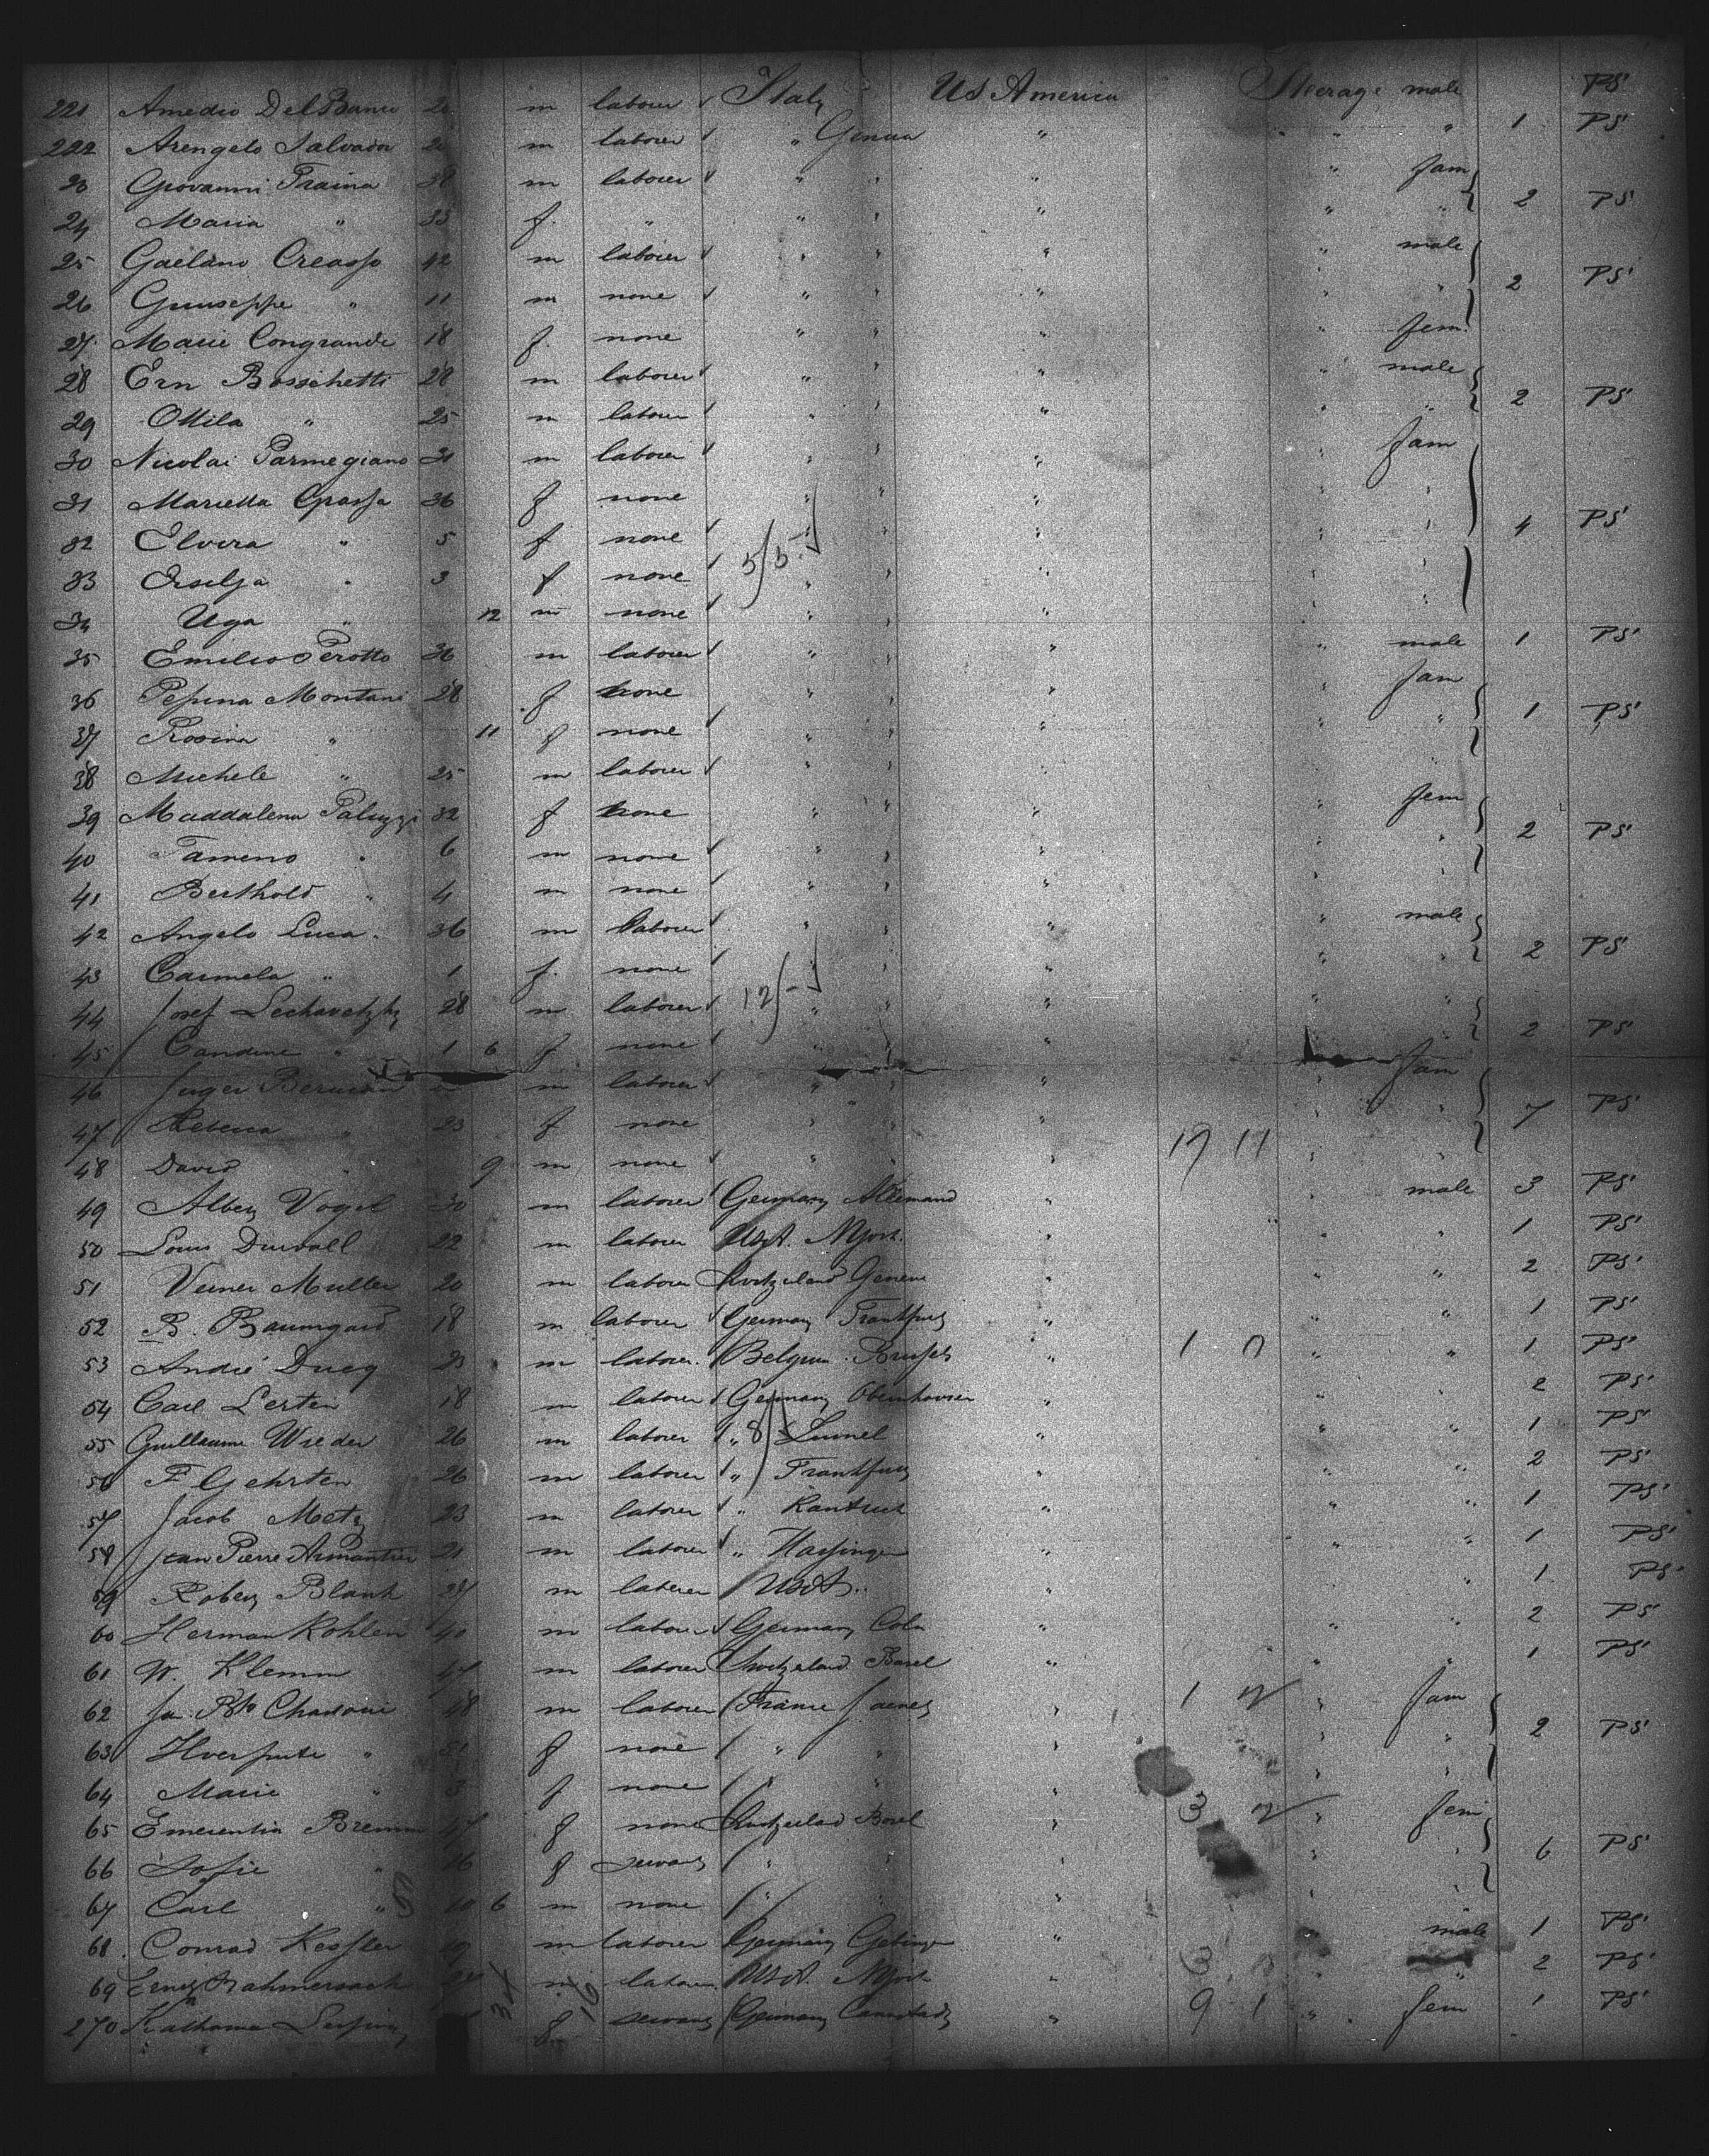 221 Amedio Del Banco m laborer Italy US America Steerage male PS
222 Arengelo Salvador m laborer " Genua " " " 1 PS
23 Giovanni Traina 38 m laborer " " " " fam
24 Maria " 33 f. " " " " " " 2 PS
25 Gaetano Creasso 42 m laborer " " " " male
26 Giuseppe " 11 m none " " " " " 2 PS
27 Marie Congrande 18 f. none " " " " fem.
28 Ern Bosschetti 28 m laborer " " " " male
29 Ottila " 25 m laborer " " " " " 2 PS
30 Nicolai Parmegiano 30 m laborer " " " " fam
31 Marietta Grassa 36 f none " " " " "
32 Elvira " 5 f none " " " " " 4 PS
33 Ersilja " 3 f none 5/5 " " " " "
34 Uga " 12 m none " " " " "
35 Emilio Perotto 36 m laborer " " " " male 1 PS
36 Pepina Montani 28 f none " " " " fam
37 Rosina " 11 f none " " " " " 1 PS
38 Michele " 25 m laborer " " " " "
39 Maddalena Paluzzi 32 f none " " " " fem
40 Tameno " 6 m none " " " " " 2 PS
41 Berthold " 4 m none " " " " "
42 Angelo Luca 36 m laborer " " " " male
43 Carmela " 1 f. none " " " " " 2 PS
44 Josef Lechavetzky 28 m laborer 12/- " " " " "
45 Candine " 1 6 f none " " " " " 2 PS
46 m laborer " " " " fam
47 Rebecca " 23 f none " " " " " 7 PS
48 David " 9 m none " " " 17 11 " "
49 Albert Vogel 30 m laborer Germany Allemand " " male 3 PS
50 Louis Duvall 22 m laborer USA. NYork. " " " 1 PS
51 Verner Muller 20 m laborer Switzerland Geneve " " " 2 PS
52 B. Baumgard 18 m laborer Germany Frankfurt " " " 1 PS
53 André Ducq 23 m laborer. Belgium. Brussels " 1 0 " " 1 PS
54 Carl Lerten 18 m laborer Germany Obernhausen " " " 2 PS
55 Guillaume Wieder 26 m laborer " 8 Lunel " " " 1 PS
56 F Gehrten 26 m laborer " Frankfurt " " " 2 PS
57 Jacob Metz 23 m laborer " " " " 1 PS
58 Jean Pierre Armantier 21 m laborer " Hassingen " " " 1 PS
59 Robert Blank 27 m laborer USA. " " 1 PS
60 Herman Kohlen 40 m laborer Germany Coln " " " 2 PS
61 W. Klemm 47 m laborer Switzerland Basel " " " 1 PS
62 Chadoni 48 m laborer France " 1 2 " fam
63 " 51 f none " " " " " 2 PS
64 Marie " 3 f none " " " " "
65 Emerentia Bremm 47 f none Switzerland Basel " 3 2 " fem
66 Sofie " 16 f servant " " " " " 6 PS
67 Carl " 10 6 m none " " " " "
68 Conrad Kessler 19 m laborer Germany " " male 1 PS
69 Ernest m laborer USA. NYork " 3 " 2 PS
270 34 16 f servant Germany Cannstadt " 9 1 " fem 1 PS